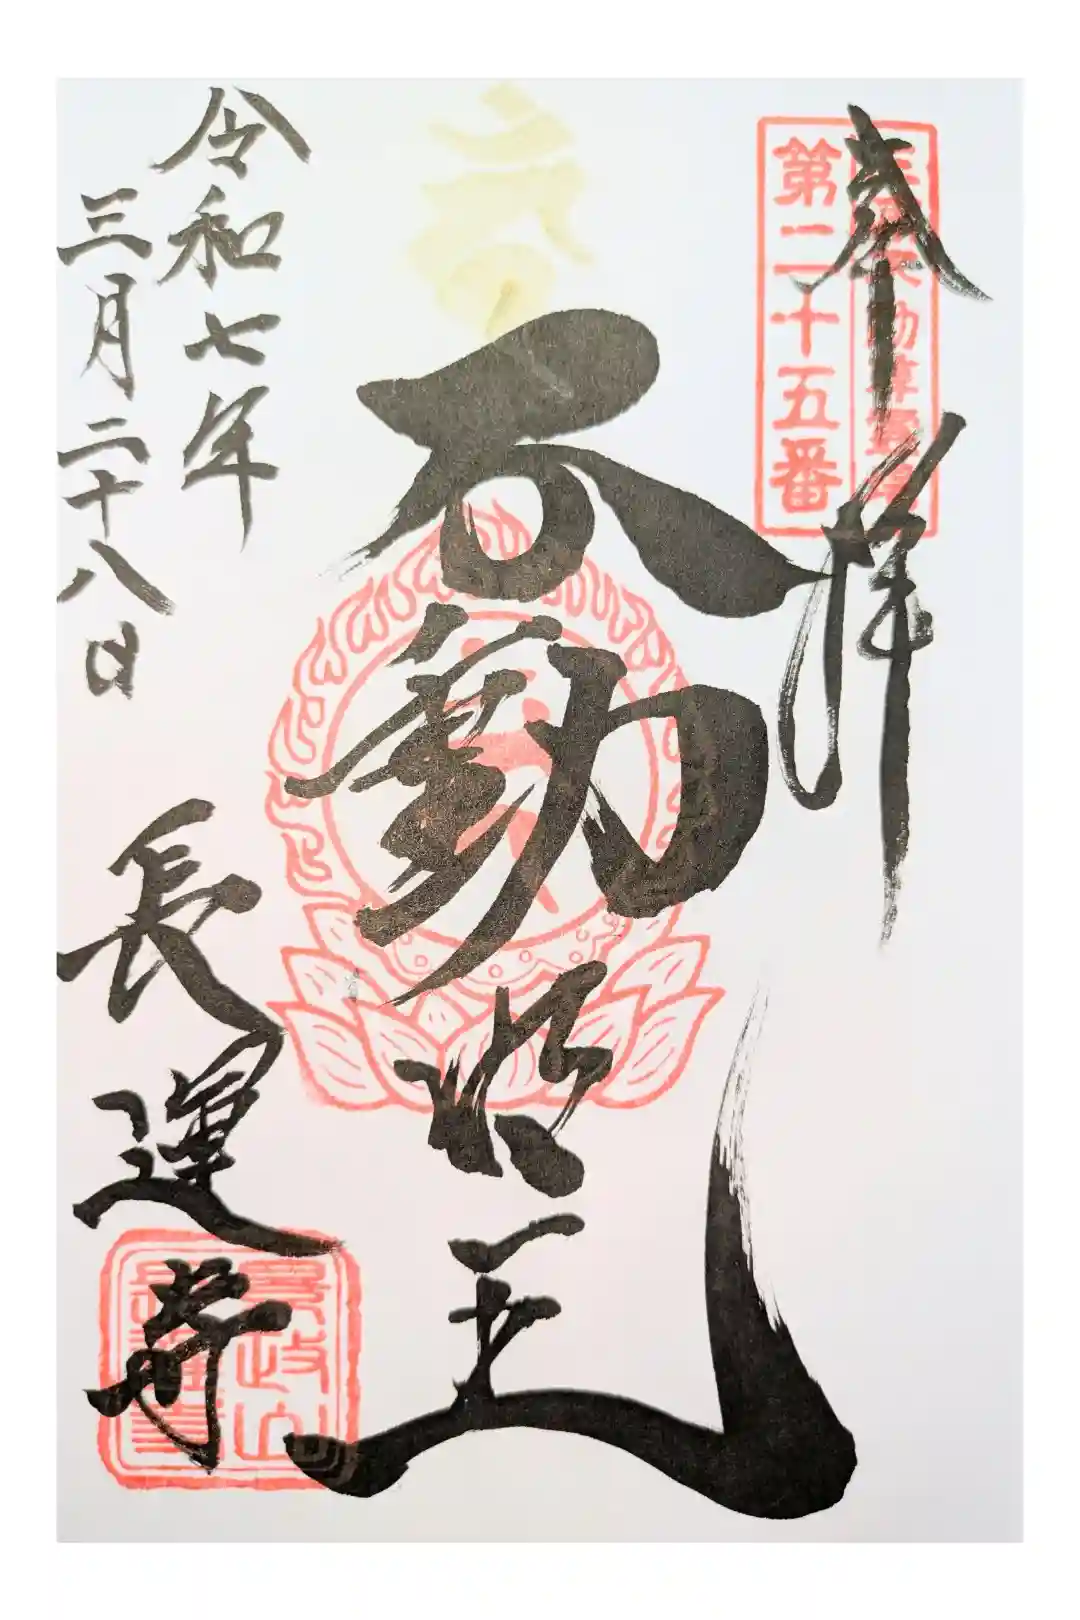 奉拝
第二十五番
不動明王
令和七年
三月二十八日
長運寺